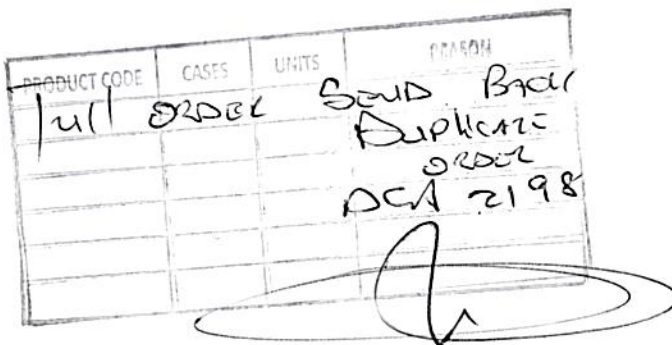 PRODUCT CODE CASES UNITS REASON
Full ORDER SEND BACK
DUPLICATE
ORDER
2198